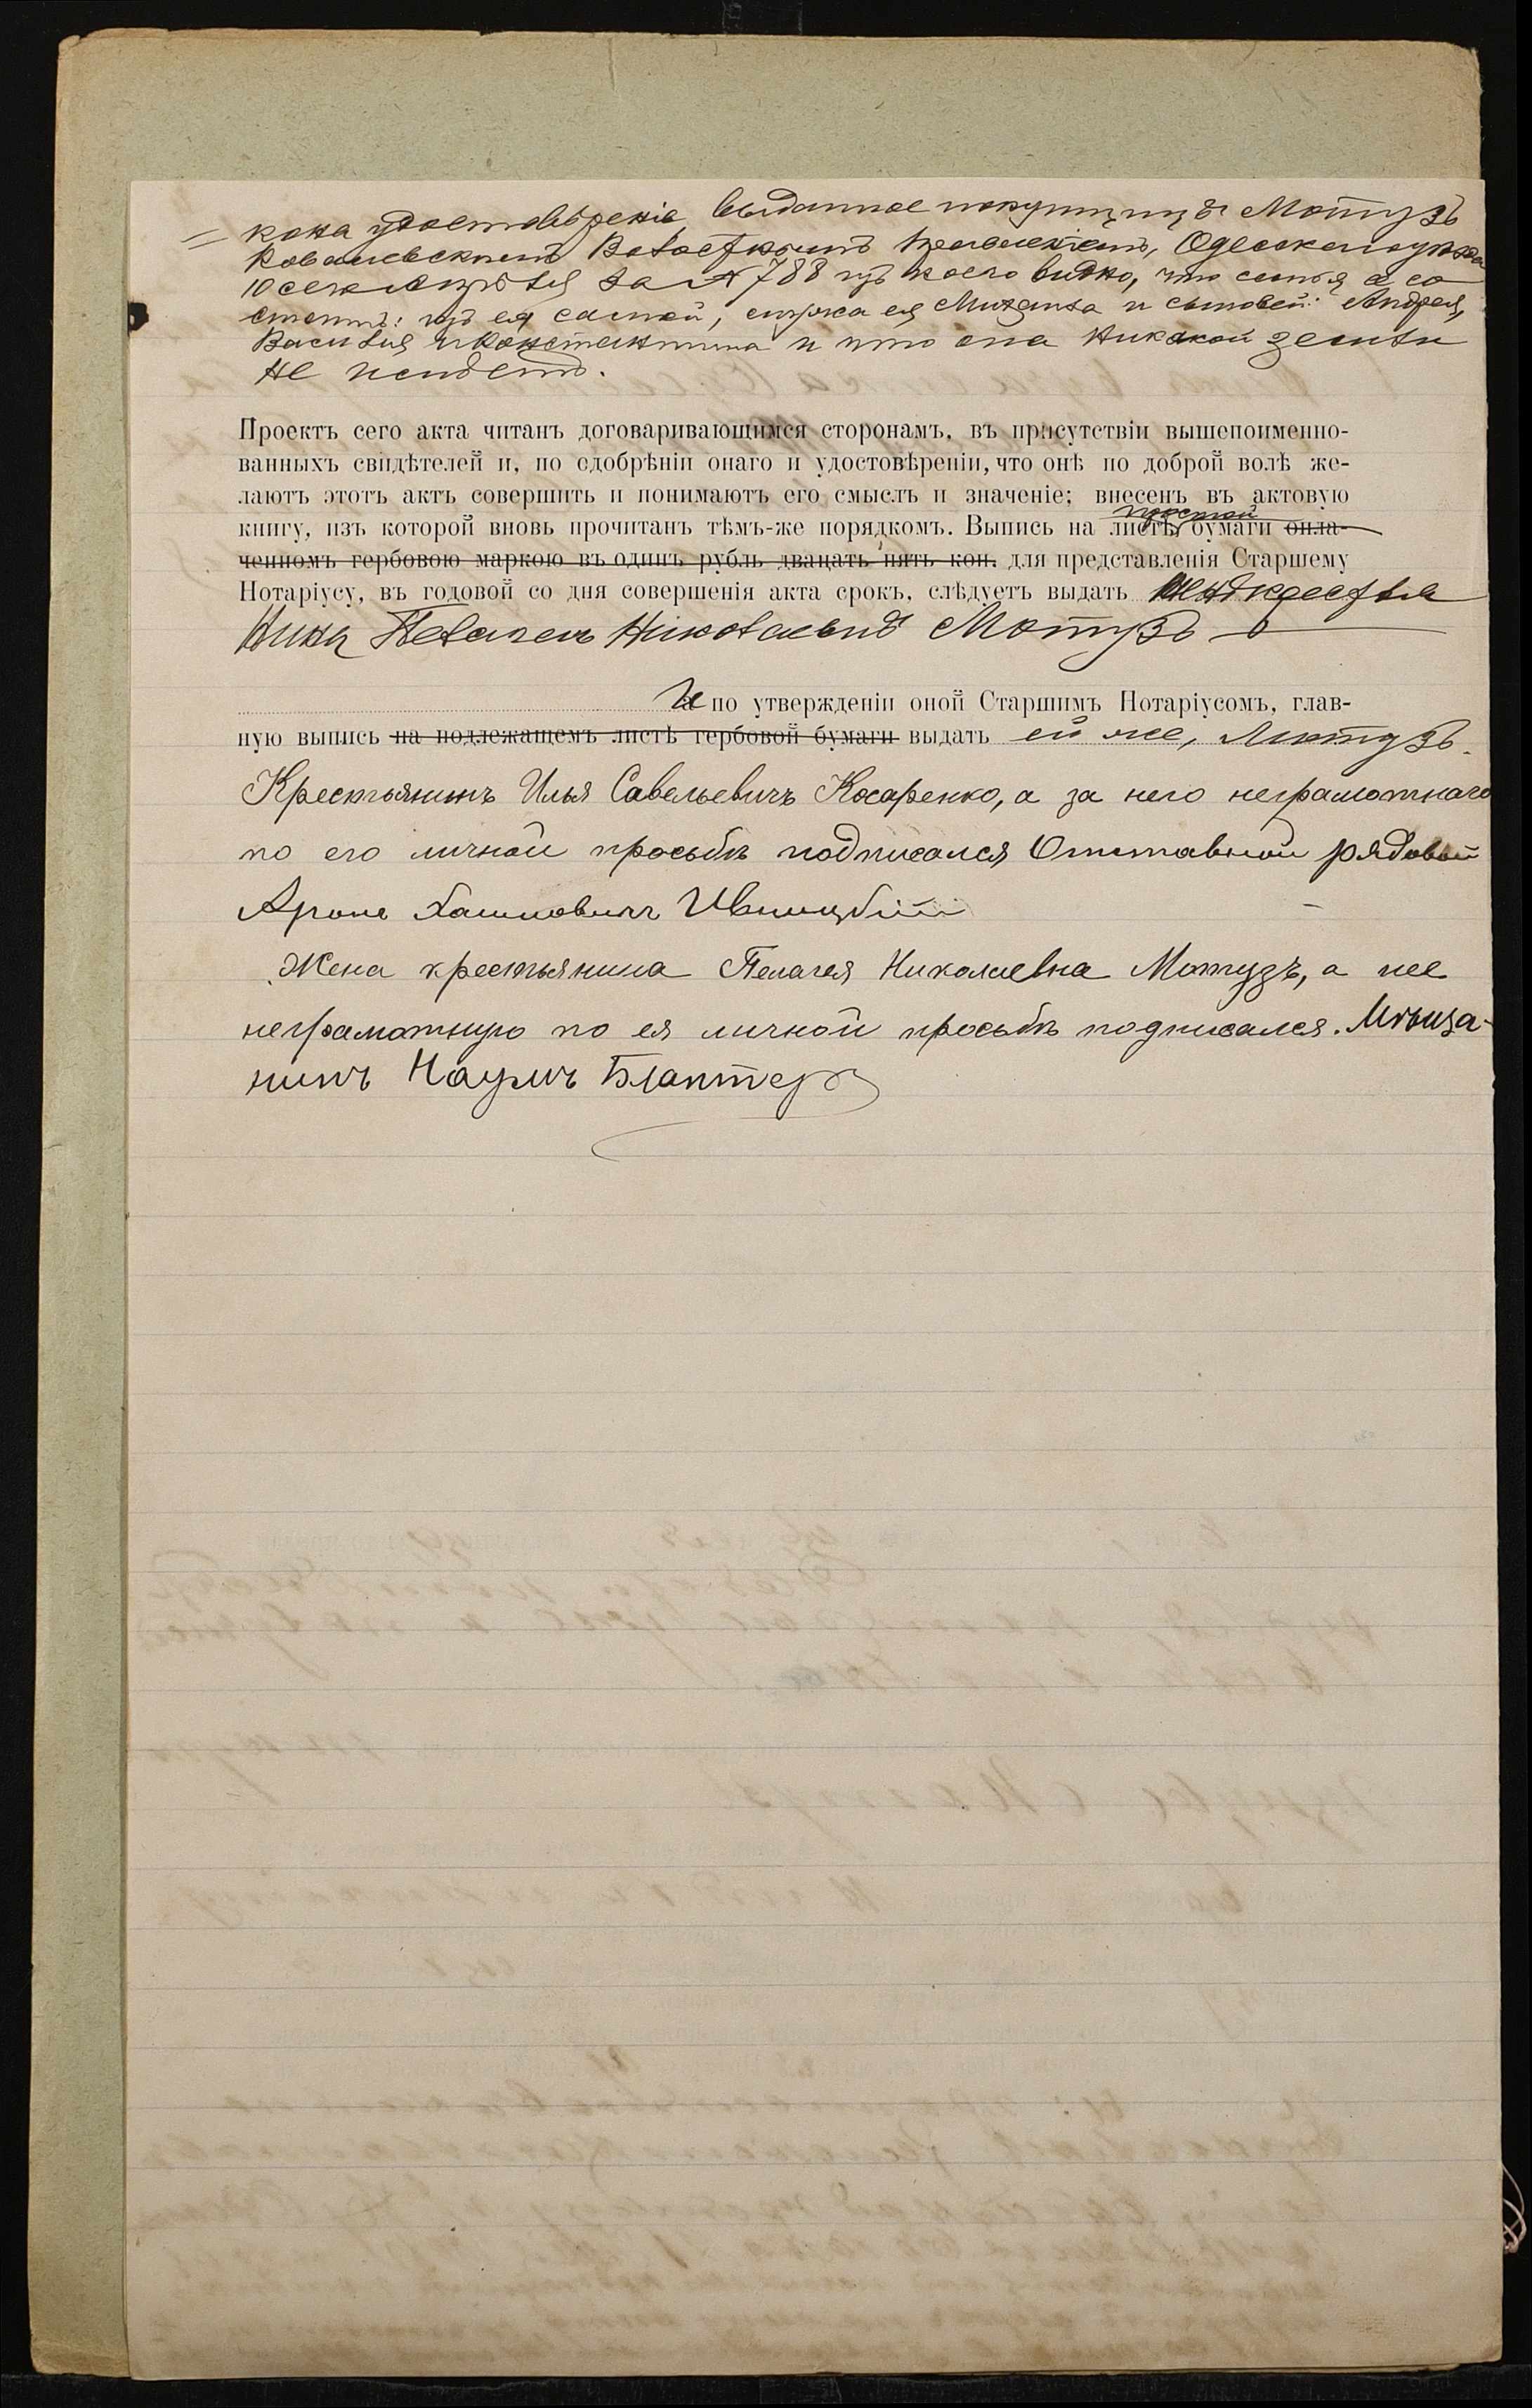 кона удостовѣреніе выданное покупщицѣ Мотузъ
Ковалевскимъ Волостнымъ Правленіемъ, Одесскаго уѣзда
10 сего Апрѣля за № 788 изъ коего видно, что семья ея со
стоитъ: изъ ея самой, мужа ея Михаила и сыновей: Андрея,
Василія и Константина и что она никакой земли
не имѣетъ.
Проектъ сего акта читанъ договаривающимся сторонамъ, въ присутствіи вышепоименно-
ванныхъ свидѣтелей и, по одобрѣніи онаго и удостовѣреніи, что онѣ по доброй волѣ же-
лаютъ этотъ актъ совершить и понимаютъ его смыслъ и значеніе; внесенъ въ актовую
простой
книгу, изъ которой вновь прочитанъ тѣмъ-же порядкомъ. Выпись на листѣ бумаги опла-
ченномъ гербовою маркою въ одинъ рубль двацать пять коп. для представленія Старшему
Нотаріусу, въ годовой со дня совершенія акта срокъ, слѣдуетъ выдать женѣ кресть
янина Пелагеѣ Николаевнѣ Мотузъ
и по утвержденіи оной Старшимъ Нотаріусомъ, глав-
ную выпись на подлежащемъ листѣ гербовой бумаги выдать ей же, Мотузъ.
Крестьянинъ Илья Савельевичъ Косаренко, а за него неграмотнаго
по его личной просьбѣ подписался Отставной рядовой
Аронъ Хаимовичъ
Жена крестьянина Пелагея Николаевна Мотузъ, а нее
неграмотную по ея личной просьбѣ подписался. Мѣща-
нинъ Наумъ Блактеръ